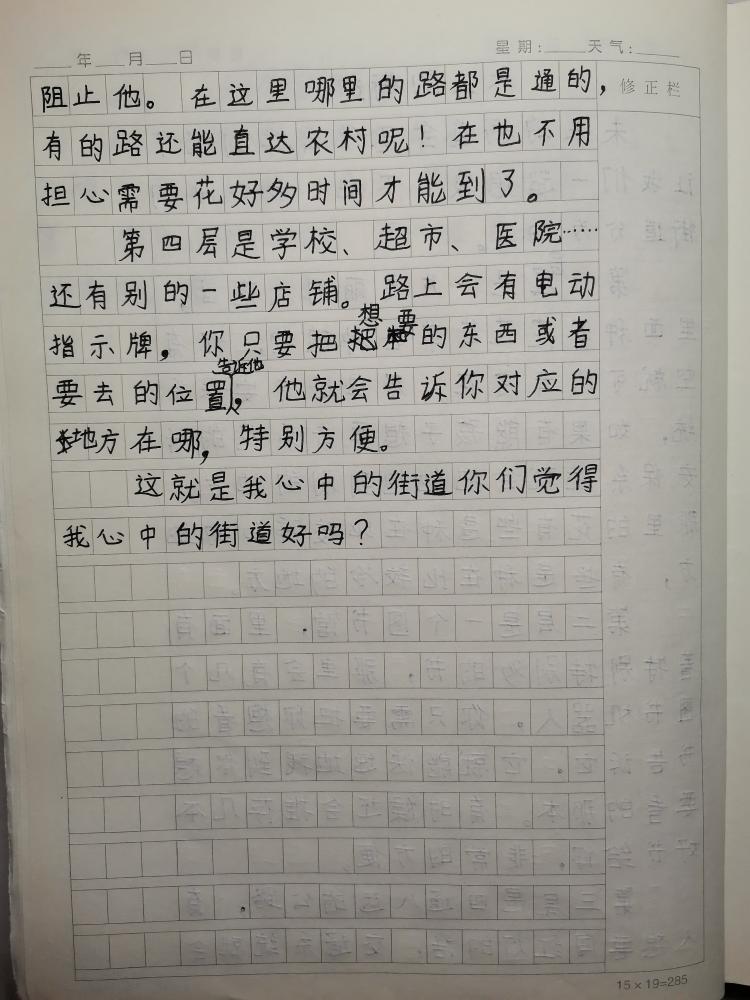 年 月 日 星期： 天气：
修正栏
阻止他。在这里哪里的路都是通的，
有的路还能直达农村呢！在也不用
担心需要花好多时间才能到了。
第四层是学校、超市、医院……
还有别的一些店铺。路上会有电动
指示牌，你只要把想要的东西或者
要去的位置告诉他，他就会告诉你对应的
地方在哪，特别方便。
这就是我心中的街道你们觉得
我心中的街道好吗？
15×19=285